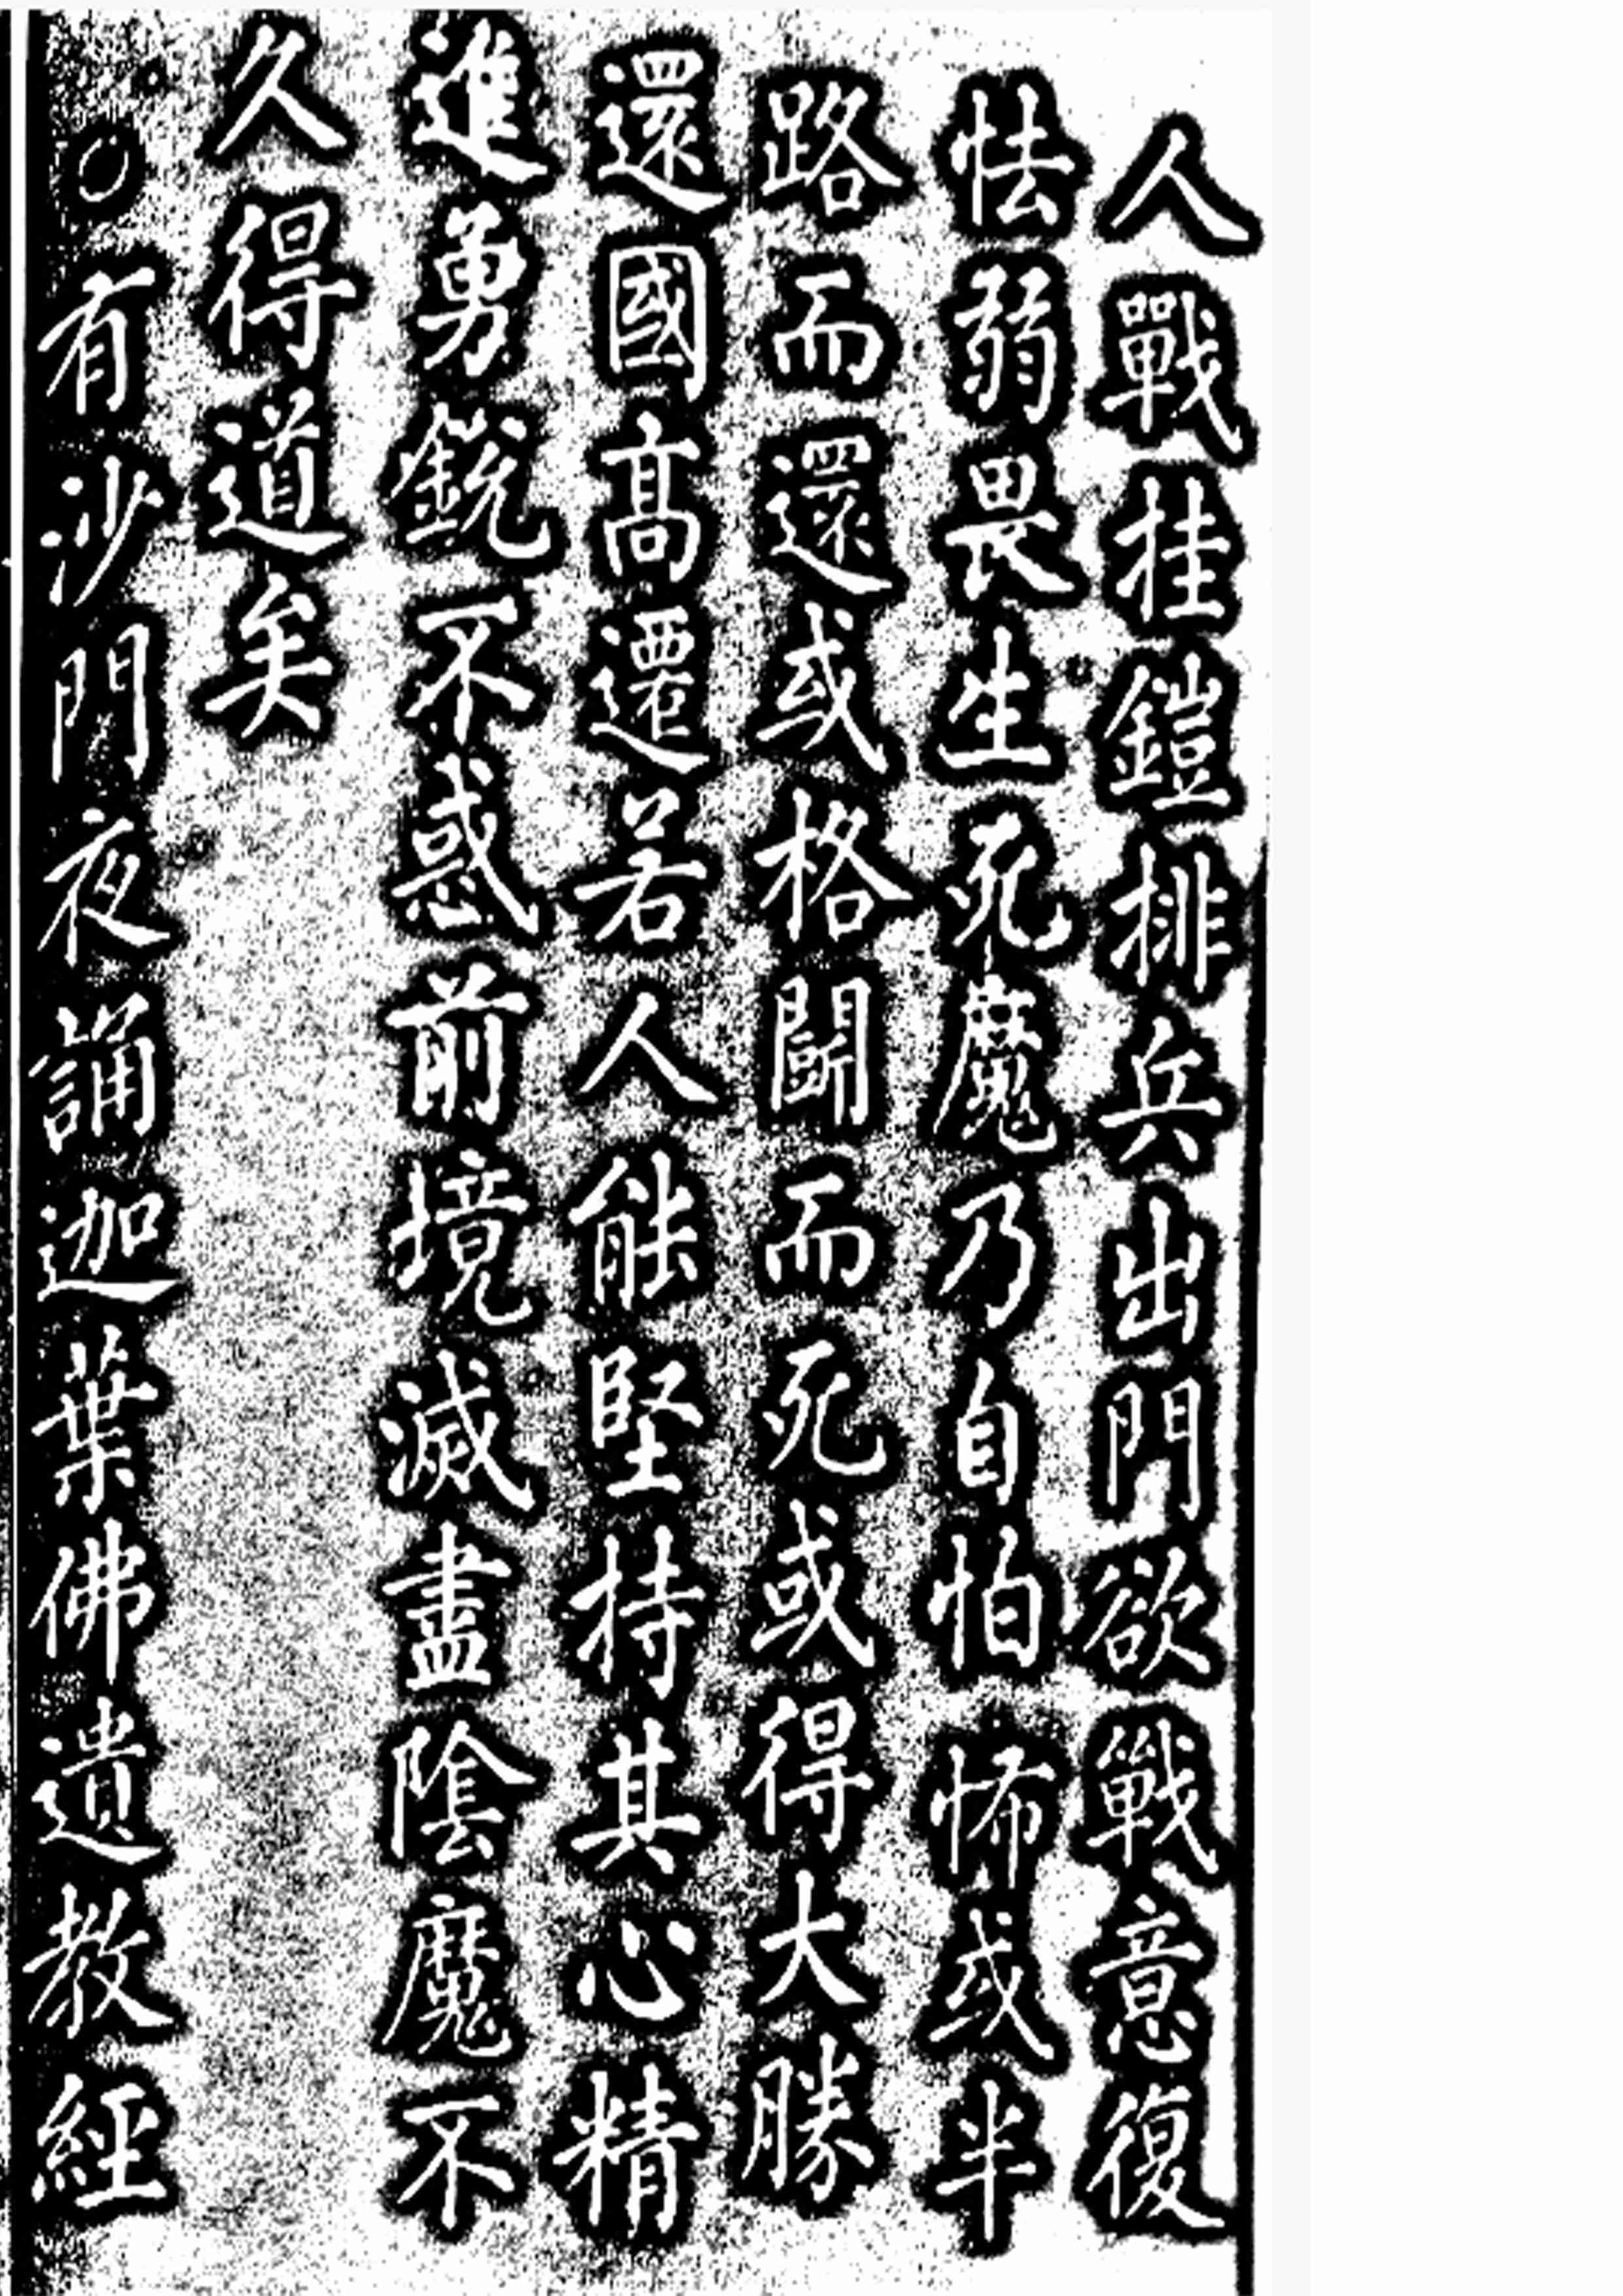 人戰挂鎧排兵出門欲戰意復
怯弱畏生死魔乃自怕怖或半
路而還或格鬪而死或得大勝
還國高遷若人能堅持其心精
進勇銳不惑前境滅盡陰魔不
久得道矣
○有沙門夜誦迦葉佛遺教經